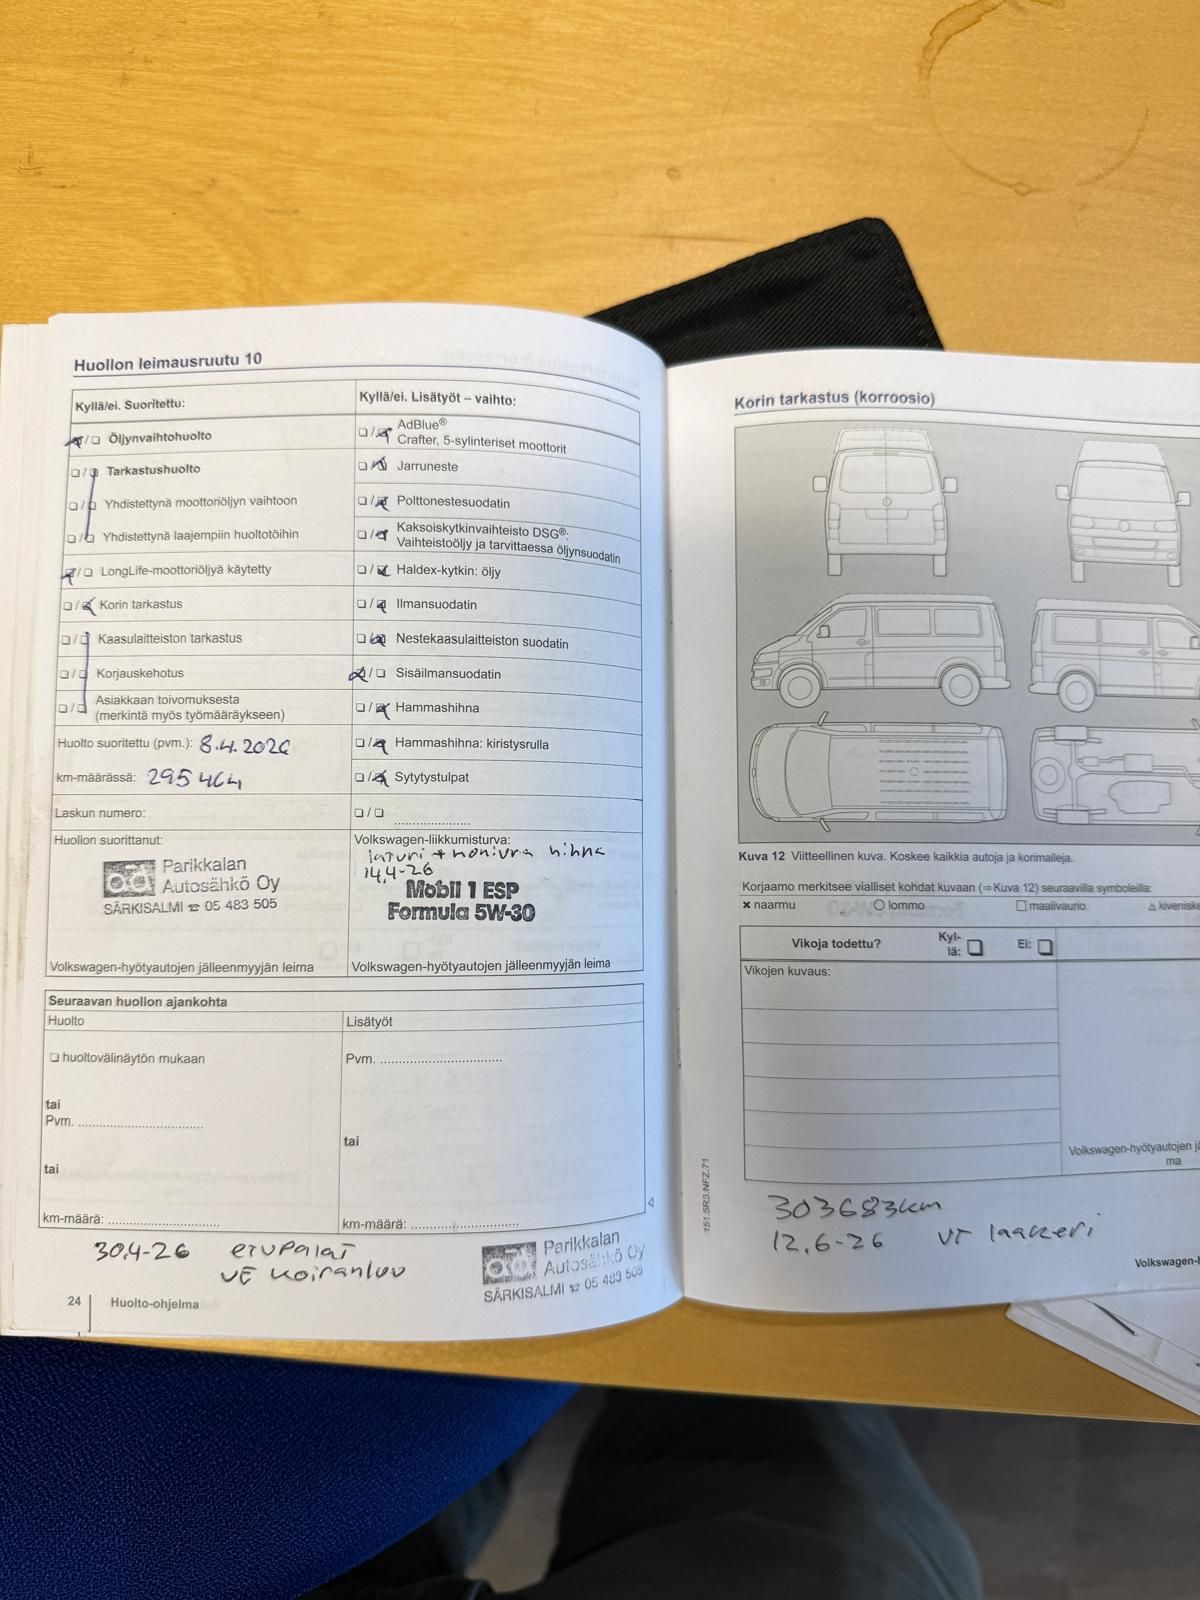 Huollon leimausruutu 10
Kyllä/ei. Suoritettu:
Öljynvaihtohuolto
Tarkastushuolto
Yhdistettynä moottoriöljyn vaihtoon
Yhdistettynä laajempiin huoltotöihin
LongLife-moottoriöljyä käytetty
Korin tarkastus
Kaasulaitteiston tarkastus
Korjauskehotus
Asiakkaan toivomuksesta
(merkintä myös työmääräykseen)
Huolto suoritettu (pvm.): 8.4.2026
km-määrässä: 295464
Laskun numero:
Huollon suorittanut:
Parikkalan
Autosähkö Oy
SÄRKISALMI ☎ 05 483 505
Volkswagen-hyötyautojen jälleenmyyjän leima
Kyllä/ei. Lisätyöt – vaihto:
AdBlue®
Crafter, 5-sylinteriset moottorit
Jarruneste
Polttonestesuodatin
Kaksoiskytkinvaihteisto DSG®:
Vaihteistoöljy ja tarvittaessa öljynsuodatin
Haldex-kytkin: öljy
Ilmansuodatin
Nestekaasulaitteiston suodatin
Sisäilmansuodatin
Hammashihna
Hammashihna: kiristysrulla
Sytytystulpat
Volkswagen-liikkumisturva:
laturi + moniura hihna
14.4-26
Mobil 1 ESP
Formula 5W-30
Volkswagen-hyötyautojen jälleenmyyjän leima
Seuraavan huollon ajankohta
Huolto
huoltovälinäytön mukaan
tai
Pvm.
tai
km-määrä:
Lisätyöt
Pvm.
tai
km-määrä:
30.4-26 etupalat
VE koiranluu
Parikkalan
Autosähkö Oy
SÄRKISALMI ☎ 05 483 505
24 Huolto-ohjelma
Korin tarkastus (korroosio)
Kuva 12 Viitteellinen kuva. Koskee kaikkia autoja ja korimalleja.
Korjaamo merkitsee vialliset kohdat kuvaan (⇒Kuva 12) seuraavilla symboleilla:
naarmu lommo maalivaurio
Vikoja todettu? Kyl-
lä: Ei:
Vikojen kuvaus:
Volkswagen-hyötyautojen
ma
151.5R3.NFZ.71
303683km
12.6-26 VT laakeri